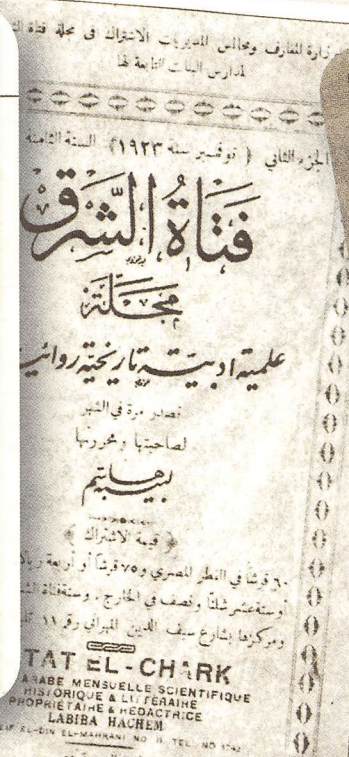 وزارة المعارف ومجالس المديريات الاشتراك فى مجلة فتاة
لمدارس البنات التابعة لها
الجزء الثاني ( نوفمبر سنة ١٩٢٣ ) السنة الثامنة
فتاة الشرق
مجلة
علمية ادبية تاريخية روائية
تصدر مرة في الشهر
لصاحبتها ومحررتها
لبيبة هاشم
﴿ قيمة الاشتراك ﴾
٦٠ قرشاً في القطر المصري و ٧٥ قرشاً أو أربعة
أو ستة عشر شلناً ونصف في الخارج ، وستة
ومركزها بشارع سيف الدين المهراني رقم ١١
TAT EL-CHARK
ARABE MENSUELLE SCIENTIFIQUE
HISTORIQUE & LITTERAIRE
PROPRIÉTAIRE & REDACTRICE
LABIBA HACHEM
EIF EL-DIN EL-MAHRANI NO 11 TEL. NO